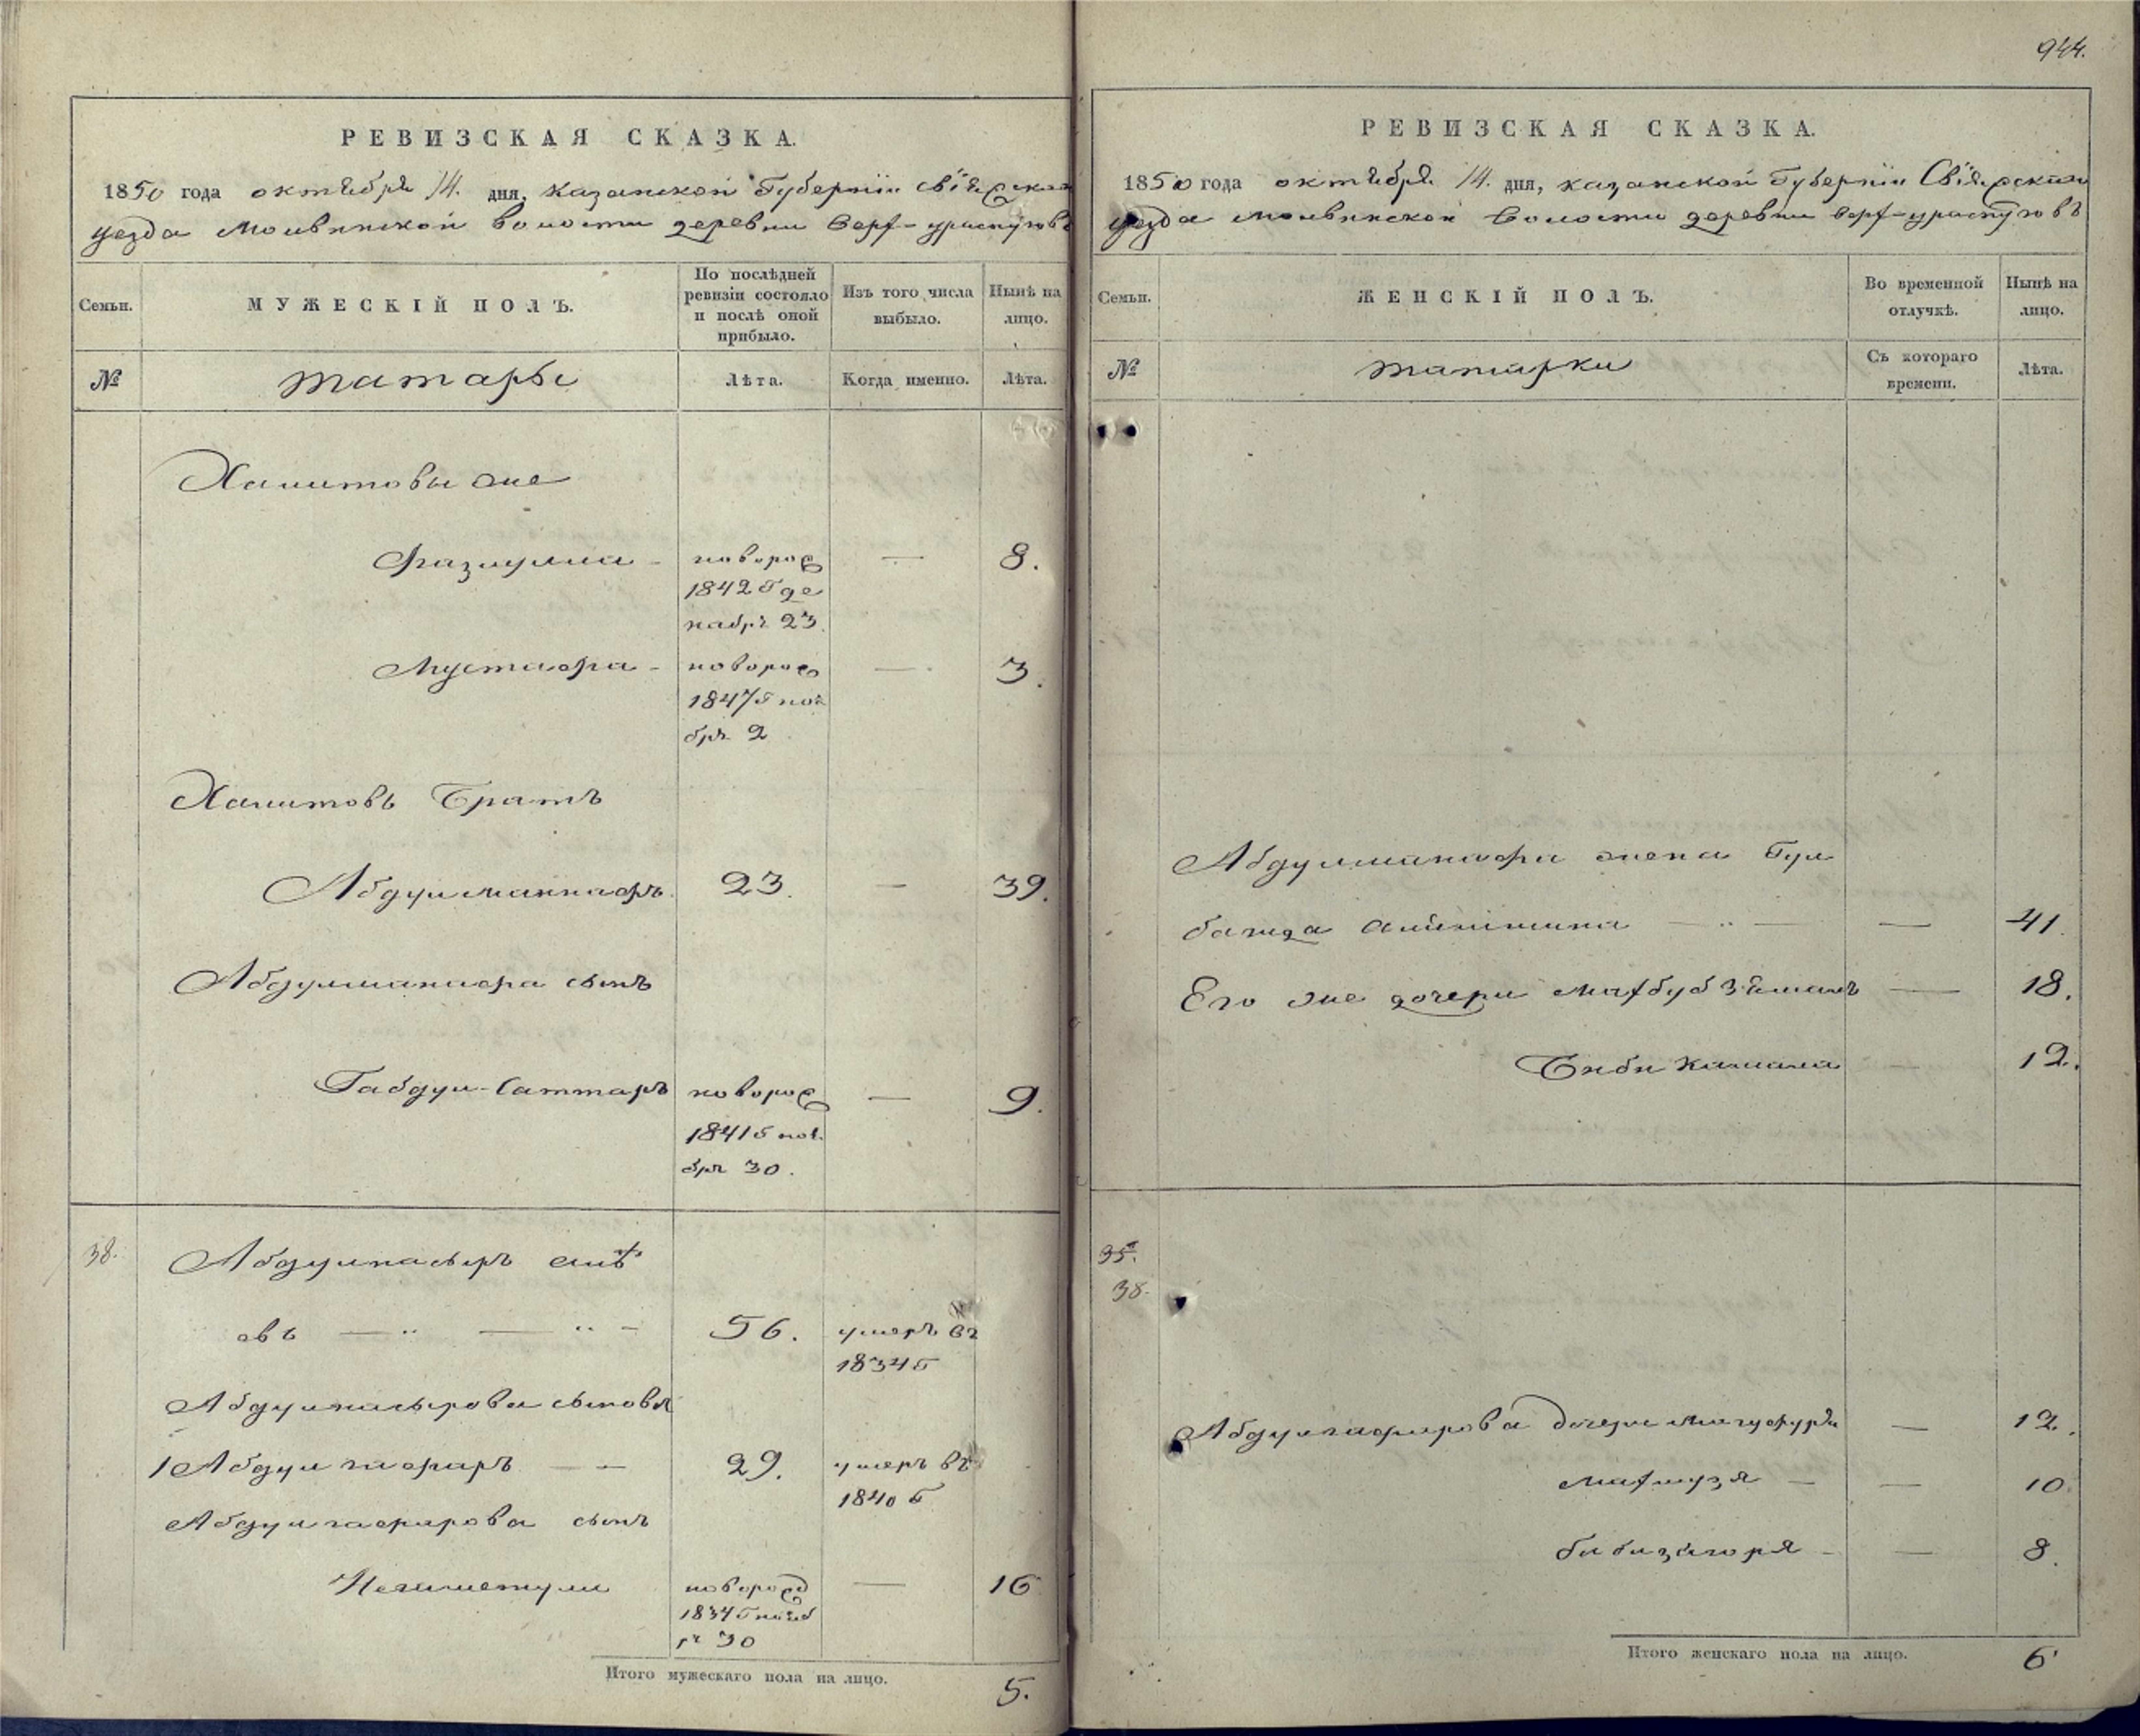 944.
РЕВИЗСКАЯ СКАЗКА.
1850 года октября 14. дня, казанской Губернiи Свiяжской
уезда Молвинской волости деревни Верх-ураспуговъ
Семьи.
МУЖЕСКIЙ ПОЛЪ.
По послѣдней
ревизiи состояло
и послѣ оной
прибыло.
Изъ того числа
выбыло.
Нынѣ на
лицо.
№
татары
Лѣта.
Когда именно.
Лѣта.
Хамитовы же
Фазлулла - новорож — 8.
1842 Г де
кабря 23.
Мустафа - новорож — 3.
1847 Г ноя
бря 2
Хамитовъ Братъ
Абдулманнафъ 23. — 39.
Абдулманафа сынъ
Габдул-Саттаръ новорож — 9.
1841 Г ноя
бря 30.
38. Абдулнасыръ
овъ — " — " - 56. умеръ въ
1834 Г
Абдулнасырова сыновья
1 Абдулгафаръ — — 29. умеръ въ
1840 Г
Абдулгафарова сынъ
новорожд — 16
1834 Г нояб
ря 30
Итого мужескаго пола на лицо. 5.
РЕВИЗСКАЯ СКАЗКА.
1850 года октября 14. дня, казанской Губернiи Свiяжской
уезда Молвинской Волости деревни верх-ураспуговъ
Семьи.
ЖЕНСКIЙ ПОЛЪ.
Во временной
отлучкѣ.
Нынѣ на
лицо.
№
татарки
Съ котораго
времени.
Лѣта.
Абдулманафа жена Гул
— " — — 41.
Его же дочери Махбубзямалъ — 18.
Биби Камала — 12.
35.
38.
Абдулгафарова дочери — 12.
— — 10.
- — 8.
Итого женскаго пола на лицо. 6